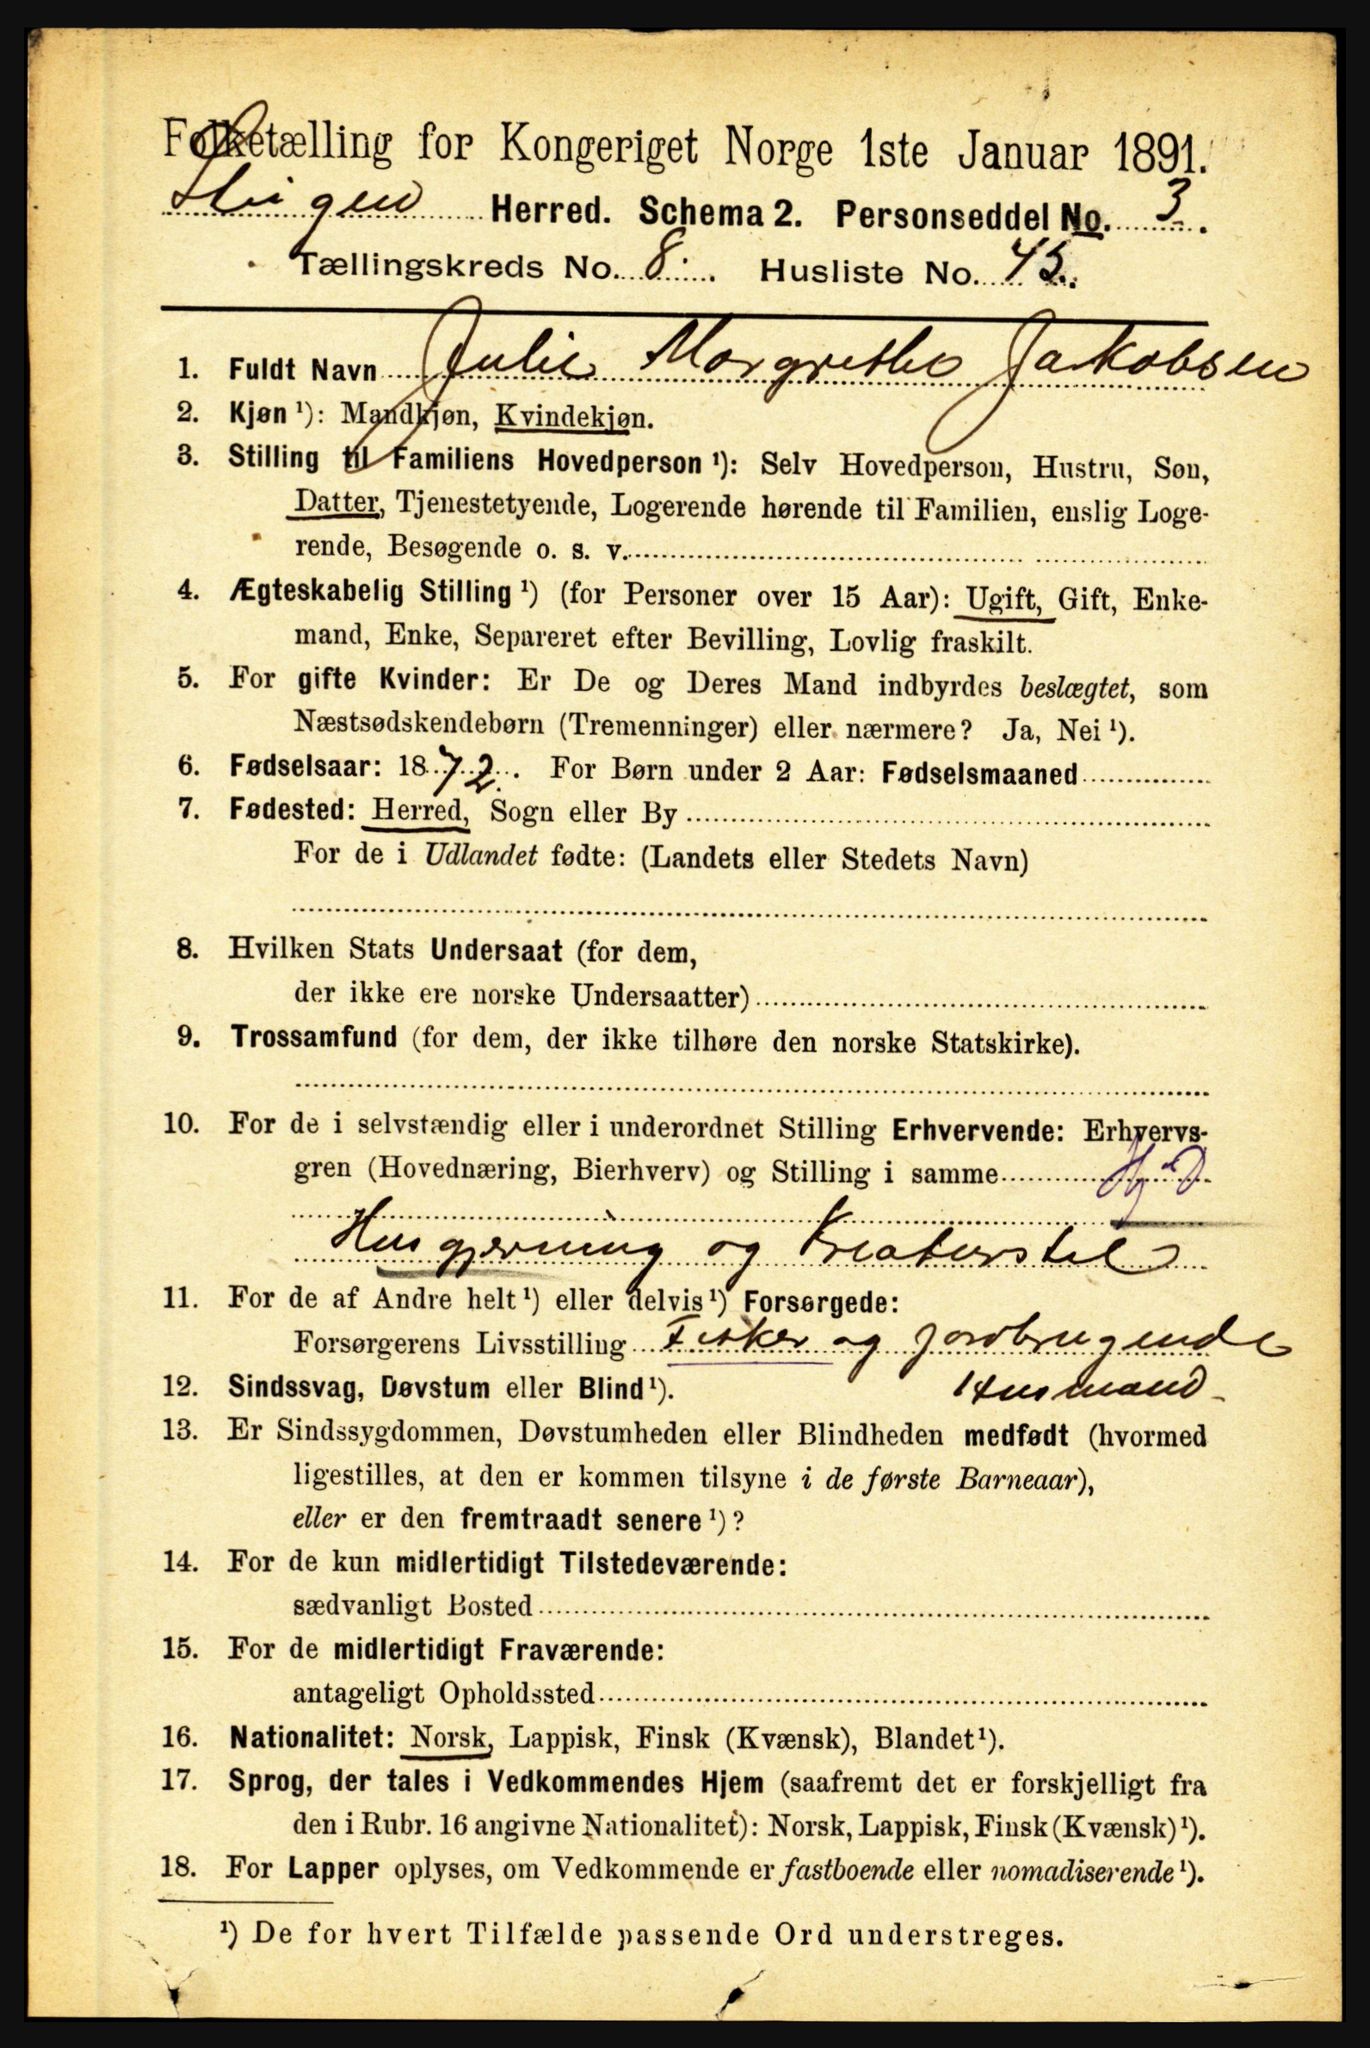 Folketælling for Kongeriget Norge 1ste Januar 1891.
Steigen Herred. Schema 2. Personseddel No. 3.
Tællingskreds No. 8. Husliste No. 45.
1. Fuldt Navn Julie Margrethe Jakobsen
2. Kjøn ¹): Mandkjøn, Kvindekjøn.
3. Stilling til Familiens Hovedperson ¹): Selv Hovedperson, Hustru, Søn,
Datter, Tjenestetyende, Logerende hørende til Familien, enslig Loge-
rende, Besøgende o. s. v.
4. Ægteskabelig Stilling ¹) (for Personer over 15 Aar): Ugift, Gift, Enke-
mand, Enke, Separeret efter Bevilling, Lovlig fraskilt.
5. For gifte Kvinder: Er De og Deres Mand indbyrdes beslægtet, som
Næstsødskendebørn (Tremenninger) eller nærmere? Ja, Nei ¹).
6. Fødselsaar: 1872. For Børn under 2 Aar: Fødselsmaaned
7. Fødested: Herred, Sogn eller By
For de i Udlandet fødte: (Landets eller Stedets Navn)
8. Hvilken Stats Undersaat (for dem,
der ikke ere norske Undersaatter)
9. Trossamfund (for dem, der ikke tilhøre den norske Statskirke).
10. For de i selvstændig eller i underordnet Stilling Erhvervende: Erhvervs-
gren (Hovednæring, Bierhverv) og Stilling i samme
Husgjerning og Kreaturstel
11. For de af Andre helt ¹) eller delvis ¹) Forsørgede:
Forsørgerens Livsstilling Fisker og jordbrugende
12. Sindssvag, Døvstum eller Blind ¹). Husmand
13. Er Sindssygdommen, Døvstumheden eller Blindheden medfødt (hvormed
ligestilles, at den er kommen tilsyne i de første Barneaar),
eller er den fremtraadt senere ¹)?
14. For de kun midlertidigt Tilstedeværende:
sædvanligt Bosted
15. For de midlertidigt Fraværende:
antageligt Opholdssted
16. Nationalitet: Norsk, Lappisk, Finsk (Kvænsk), Blandet ¹).
17. Sprog, der tales i Vedkommendes Hjem (saafremt det er forskjelligt fra
den i Rubr. 16 angivne Nationalitet): Norsk, Lappisk, Finsk (Kvænsk) ¹).
18. For Lapper oplyses, om Vedkommende er fastboende eller nomadiserende ¹).
¹) De for hvert Tilfælde passende Ord understreges.